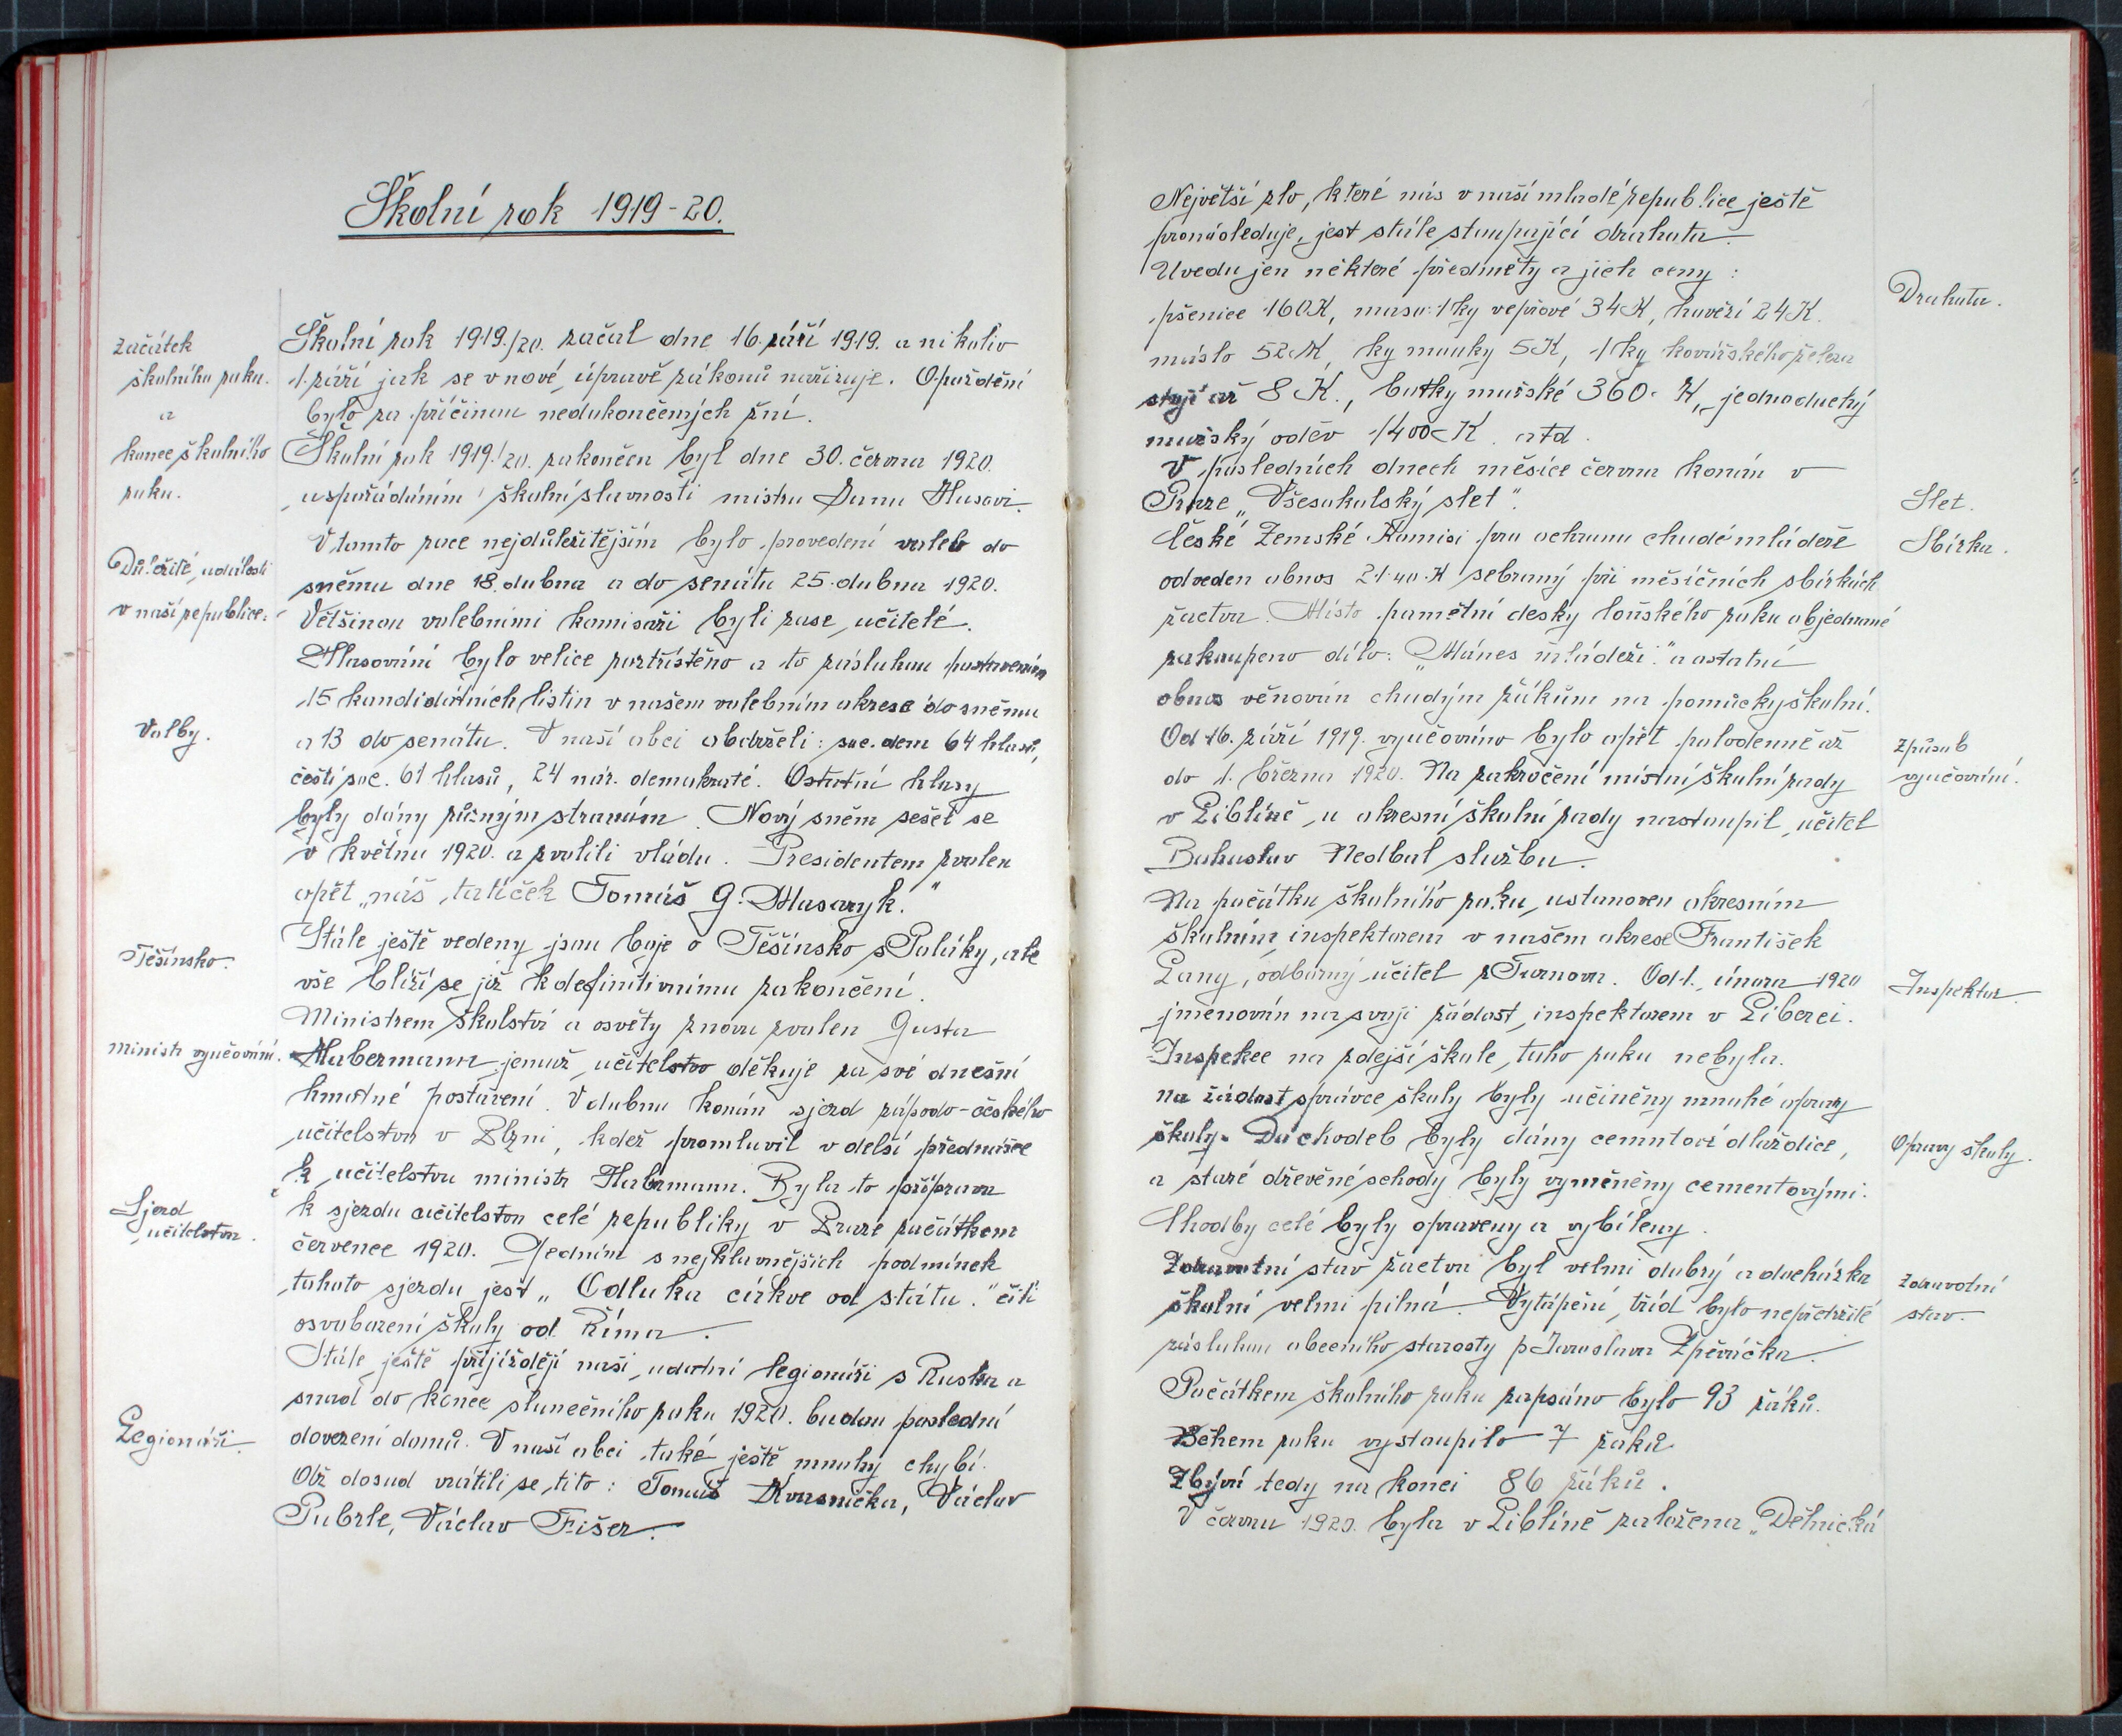 Školní rok 1919-20.
začátek
školního roku.
a
konec školního
roku.
Školní rok 1919./20. začal dne 16. září 1919. a nikoliv
1. září jak se v nové úpravě zákonů nařizuje. Opoždění
bylo za příčinou nedokončených žní.
Školní rok 1919./20. zakončen byl dne 30. června 1920.
uspořádáním školní slavnosti mistru Janu Husovi.
Důležité události
v naší republice.
V tomto roce nejdůležitějším bylo provedení voleb do
sněmu dne 18. dubna a do senátu 25. dubna 1920.
Většinou volebními komisaři byli zase učitelé.
Hlasování bylo velice roztříštěno a to zásluhou postavením
15 kandidátních listin v našem volebním okrese do sněmu
Volby.
a 13 do senátu. V naší obci obdrželi: soc. dem 64 hlasů,
čeští soc. 61 hlasů, 24 nár. demokraté. Ostatní hlasy
byly dány různým stranám. Nový sněm sešel se
v květnu 1920. a zvolili vládu. Presidentem zvolen
opět „náš tatíček Tomáš G. Masaryk."
Těšínsko.
Stále ještě vedeny jsou boje o Těšínsko s Poláky, ale
vše blíží se již k definitivnímu zakončení.
ministr vyučování.
Ministrem školství a osvěty znova zvolen Gusta
Habermann, jemuž učitelstvo děkuje za své dnešní
hmotné postavení. V dubnu konán sjezd západo-českého
učitelstva v Plzni, kdež promluvil v delší přednášce
k učitelstvu ministr Habrmann. Byla to příprava
Sjezd
učitelstva.
k sjezdu učitelstva celé republiky v Praze začátkem
července 1920. Jedním s nejhlavnějších podmínek
tohoto sjezdu jest „Odluka církve od státu." čili
osvobození školy od Říma.
Stále ještě přijíždějí naši udatní legionáři s Ruska a
snad do konce slunečního roku 1920. budou poslední
Legionáři.
dovezeni domů. V naší obci také ještě mnohý chybí.
Až dosud vrátili se tito: Tomáš Kvasnička, Václav
Pubrle, Václav Fišer.
Největší zlo, které nás v naší mladé republice ještě
pronásleduje, jest stále stoupající drahota.
Uvedu jen některé předměty a jich ceny:
Drahota.
pšenice 160 K, maso: 1 kg vepřové 34 K, hovězí 24 K.
máslo 52 K, kg mouky 5 K, 1 kg kovářského železa
stojí až 8 K., botky mužské 360. K, jednoduchý
mužský oděv 1400 K. atd.
V posledních dnech měsíce června konán v
Praze „Všesokolský slet".
Slet.
České Zemské Komisi pro ochranu chudé mládeže
Sbírka.
odveden obnos 21.40 K sebraný při měsíčních sbírkách
žactva. Místo pamětní desky loňského roku objednané
zakoupeno dílo: „Mánes mládeži." a ostatní
obnos věnován chudým žákům na pomůcky školní.
Od 16. září 1919. vyučováno bylo opět polodenně až
Způsob
vyučování.
do 1. března 1920. Na zakročení místní školní rady
v Liblíně u okresní školní rady nastoupil učitel
Bohuslav Nedbal službu.
Na počátku školního roku ustanoven okresním
školním inspektorem v našem okrese František
Lang, odborný učitel z Turnova. Od 1. února 1920
Inspektor.
jmenován na svoji žádost inspektorem v Liberci.
Inspekce na zdejší škole tuho roku nebyla.
na žádost správce školy byly učiněny mnohé opravy
školy. Do chodeb byly dány cemntové dlaždice,
Opravy školy.
a staré dřevěné schody byly vyměněny cementovými.
Chodby celé byly opraveny a vybíleny.
Zdravotní stav žactva byl velmi dobrý a docházka
Zdravotní
stav.
školní velmi pilná. Vytápění tříd bylo nepřetržité
zásluhou obecního starosty p. Jaroslava Zpěváčka.
Počátkem školního roku zapsáno bylo 93 žáků.
Během roku vystoupilo 7 žáků
Zbývá tedy na konci 86 žáků.
V červnu 1920. byla v Liblíně založena „Dělnická